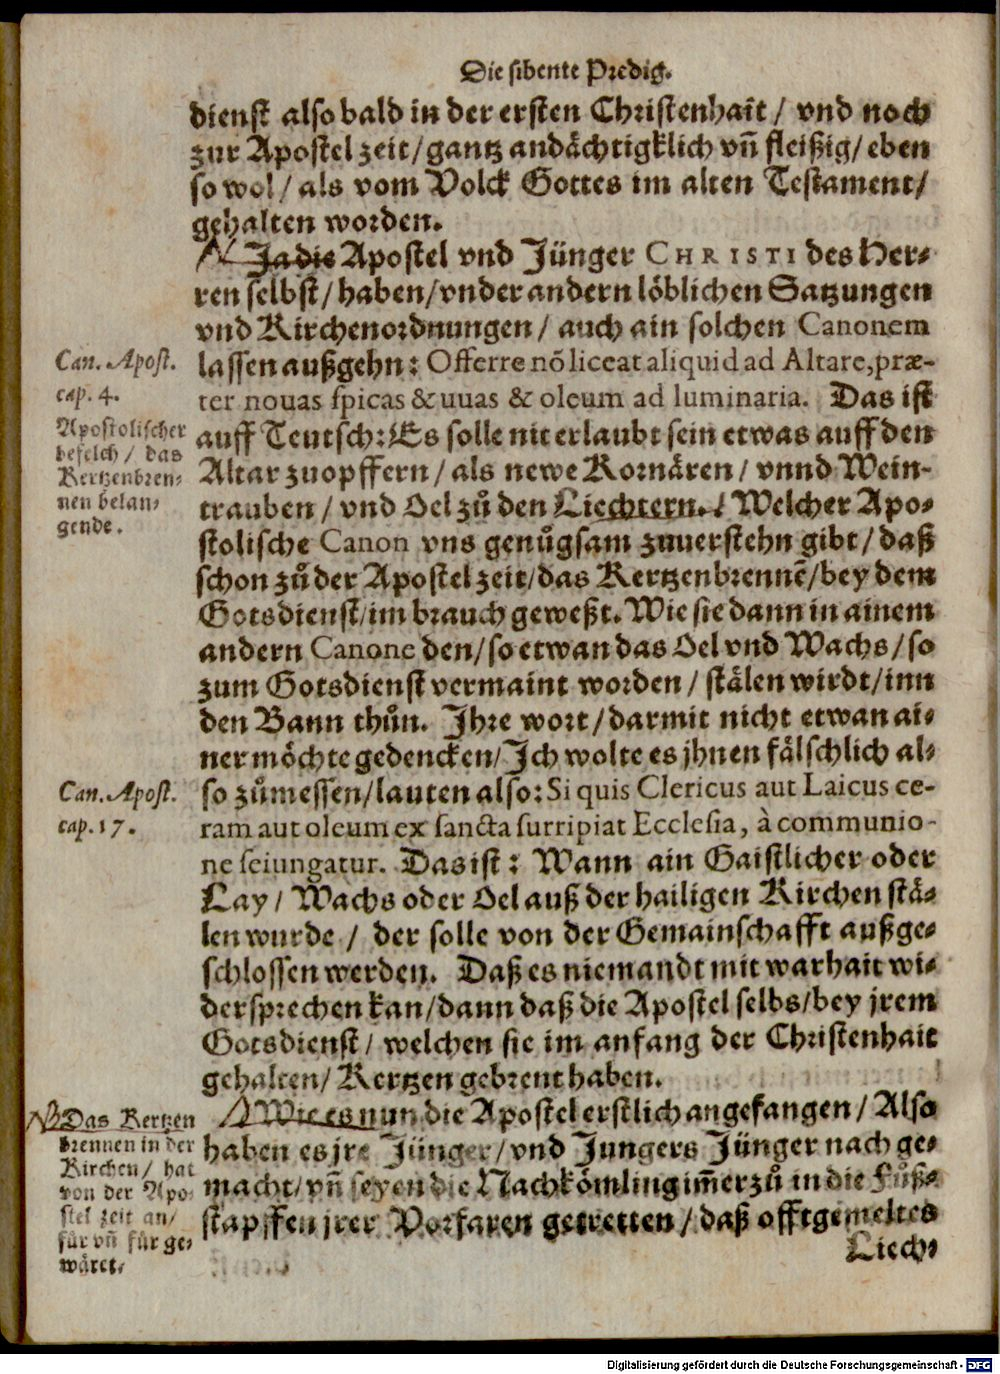 Die sibente Predig.
dienst also bald in der ersten Christenhait / vnd noch
zur Apostel zeit / gantz andächtigklich vñ fleißig / eben
so wol / als vom Volck Gottes im alten Testament /
gehalten worden.
Ja die Apostel vnd Jünger CHRISTI des Her⸗
ren selbst / haben / vnder andern löblichen Satzungen
vnd Kirchenordnungen / auch ain solchen Canonem
Can. Apost.
cap. 4.
lassen außgehn: Offerre nō liceat aliquid ad Altare, præ-
ter nouas spicas & uuas & oleum ad luminaria. Das ist
Apostolischer
befelch / das
Kertzenbren⸗
nen belan⸗
gende.
auff Teutsch: Es solle nit erlaubt sein etwas auff den
Altar zuopffern / als newe Kornären / vnnd Wein-
trauben / vnd Oel zů den Liechtern. / Welcher Apo⸗
stolische Canon vns genůgsam zuuerstehn gibt / daß
schon zů der Apostel zeit / das Kertzenbrennē / bey dem
Gotsdienst / im brauch geweßt. Wie sie dann in ainem
andern Canone den / so etwan das Oel vnd Wachs / so
zum Gotsdienst vermaint worden / stälen wirdt / inn
den Bann thůn. Ihre wort / darmit nicht etwan ai⸗
ner möchte gedencken / Ich wolte es jhnen fälschlich al⸗
Can. Apost.
cap. 17.
so zůmessen / lauten also: Si quis Clericus aut Laicus ce-
ram aut oleum ex sancta surripiat Ecclesia, à communio-
ne seiungatur. Das ist: Wann ain Gaistlicher oder
Lay / Wachs oder Oel auß der hailigen Kirchen stä⸗
len wurde / der solle von der Gemainschafft außge⸗
schlossen werden. Daß es niemandt mit warhait wi⸗
dersprechen kan / dann daß die Apostel selbs / bey jrem
Gotsdienst / welchen sie im anfang der Christenhait
gehalten / Kertzen gebrent haben.
Das Kertzen
brennen in der
Kirchen / hat
von der Apo⸗
stel zeit an /
für vñ für ge⸗
wäret.
Wie es nun die Apostel erstlich angefangen / Also
haben es jre Jünger / vnd Jungers Jünger nach ge⸗
macht / vñ seyen die Nachkömling im̄erzů in die Fůß⸗
stapffen jrer Vorfaren getretten / daß offtgemeltes
Liech⸗
Digitalisierung gefördert durch die Deutsche Forschungsgemeinschaft - DFG